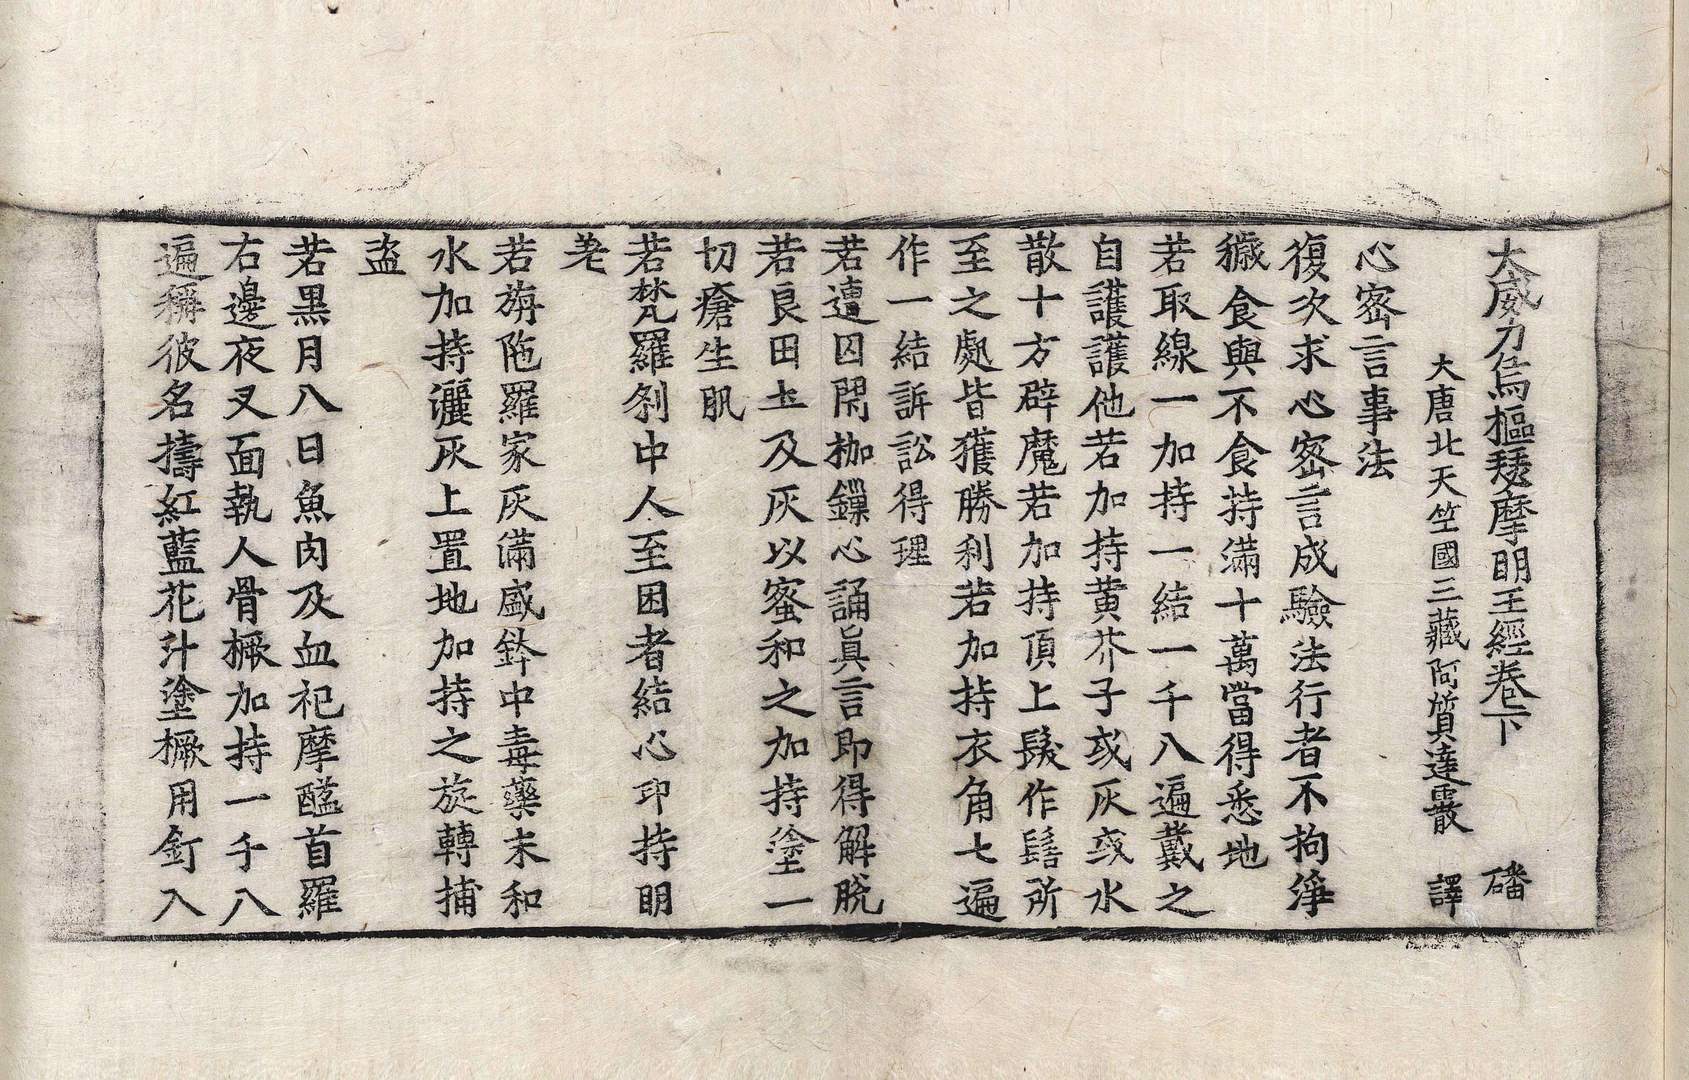 大威力烏樞瑟摩明王經卷下 磻
大唐北天竺國三藏阿質達霰 譯
心密言事法
復次求心密言成驗法行者不拘淨
穢食與不食持滿十萬當得悉地
若取線一加持一結一千八遍戴之
自護護他若加持黃芥子或灰或水
散十方辟魔若加持頂上髮作髻所
至之處皆獲勝利若加持衣角七遍
作一結訴訟得理
若遭囚閉枷鏁心誦眞言即得解脫
若良田土及灰以蜜和之加持塗一
切瘡生肌
若梵羅刹中人至困者結心印持明
差
若旃陁羅家灰滿盛鉢中毒藥末和
水加持灑灰上置地加持之旋轉捕
盜
若黑月八日魚肉及血祀摩醯首羅
右邊夜叉面執人骨橛加持一千八
遍稱彼名擣紅藍花汁塗橛用釘入